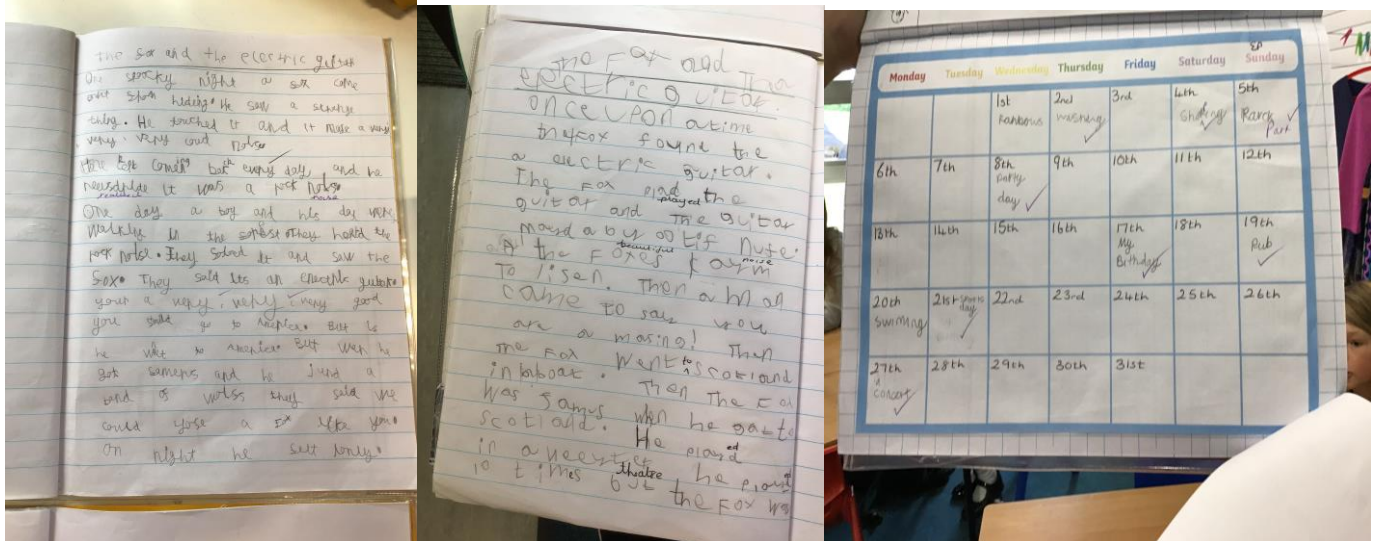 the sox and the electric guitar
On spocky night a sox come
out shom hiding. He saw a
thing. He touched it and it make a very
very very oud noise
He kept coming bak every day and he
it was a rock noise
noise
One day a boy and his dad were
walking in the sorest they heard the
rock noise. They solod it and saw the
sox. They said its an electric guitar
your a very, very very good
you shit go to America. But is
he wet to America. But wen he
got samens and he jund a
band of wolss they said we
could yose a sox like you.
On night he selt lonly.
The Fox and The
electric guitar.
once upon a time
the fox foune the
a electric guitar.
The Fox plad the
played
guitar and The guitar
mayd a byootif nuse.
beautiful noise
All the Foxes karm
To lisen. Then a man
came to say you
are a masing! Then
The Fox went to scotland
in a boat. Then The Fox
was famus when he gat to
scotland. He played
in a
theatre
he played
10 times but the Fox was
Monday Tuesday Wednesday Thursday Friday Saturday Sunday
1st 2nd 3rd 4th 5th
Rainbows washing Sharing Park
6th 7th 8th 9th 10th 11th 12th
party
day
13th 14th 15th 16th 17th 18th 19th
My Pub
Birthday
20th 21st sports 22nd 23rd 24th 25th 26th
swimming day
27th 28th 29th 30th 31st
concert